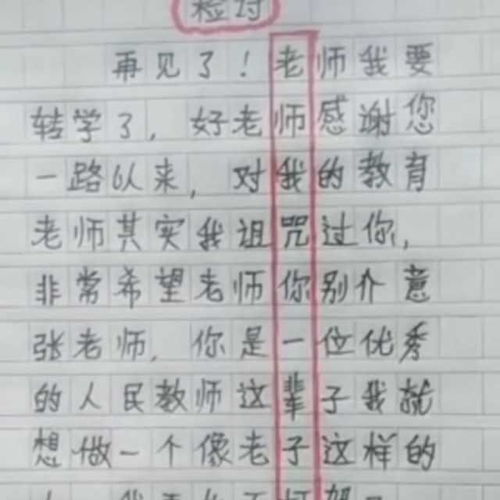 检讨
再见了！老师我要
转学了，好老师感谢您
一路以来，对我的教育
老师其实我诅咒过你，
非常希望老师你别介意
张老师，你是一位优秀
的人民教师这辈子我就
想做一个像老子这样的